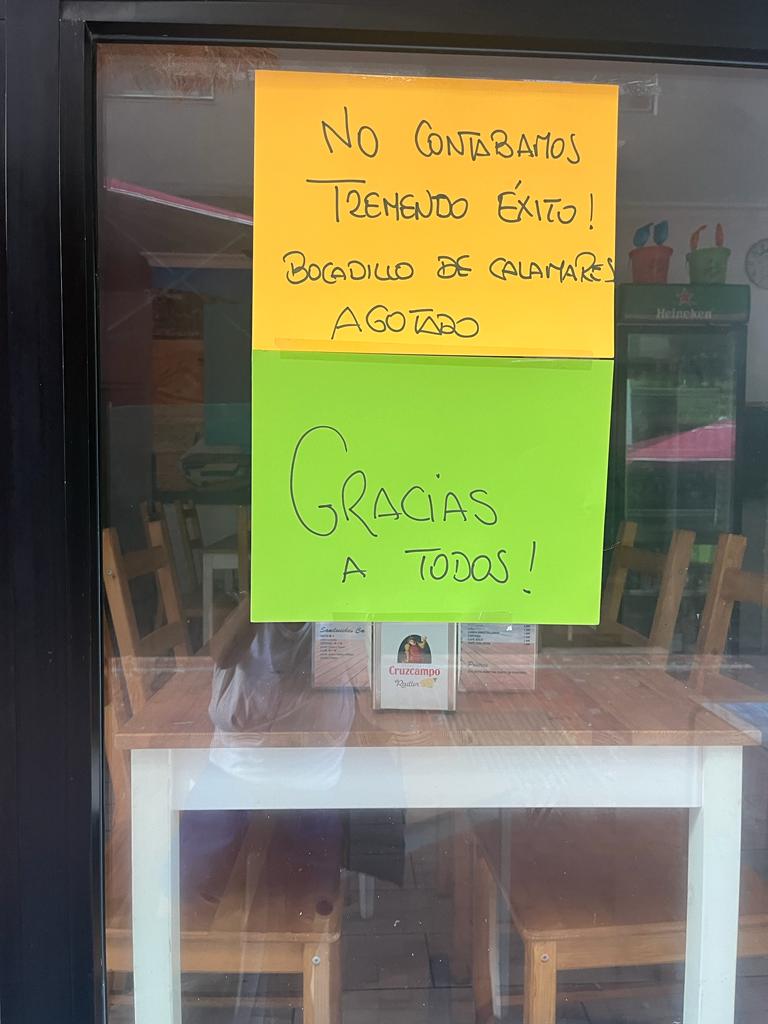 NO CONTABAMOS
TREMENDO ÉXITO!
BOCADILLO DE CALAMARES
AGOTADO
GRACIAS
A TODOS!
Heineken
Sandwiches
Cruzcampo
Radler
Postres